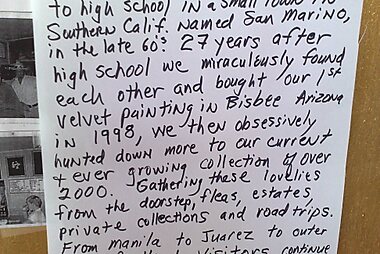 to high school in a small town in
Southern Calif. named San Marino,
in the late 60s. 27 years after
high school we miraculously found
each other and bought our 1st
velvet painting in Bisbee Arizona
in 1998, we then obsessively
hunted down more to our current
+ ever growing collection of over
2000. Gathering these lovelies
from the doorstep, fleas, estates,
private collections and road trips.
From manila to Juarez to outer
visitors continue